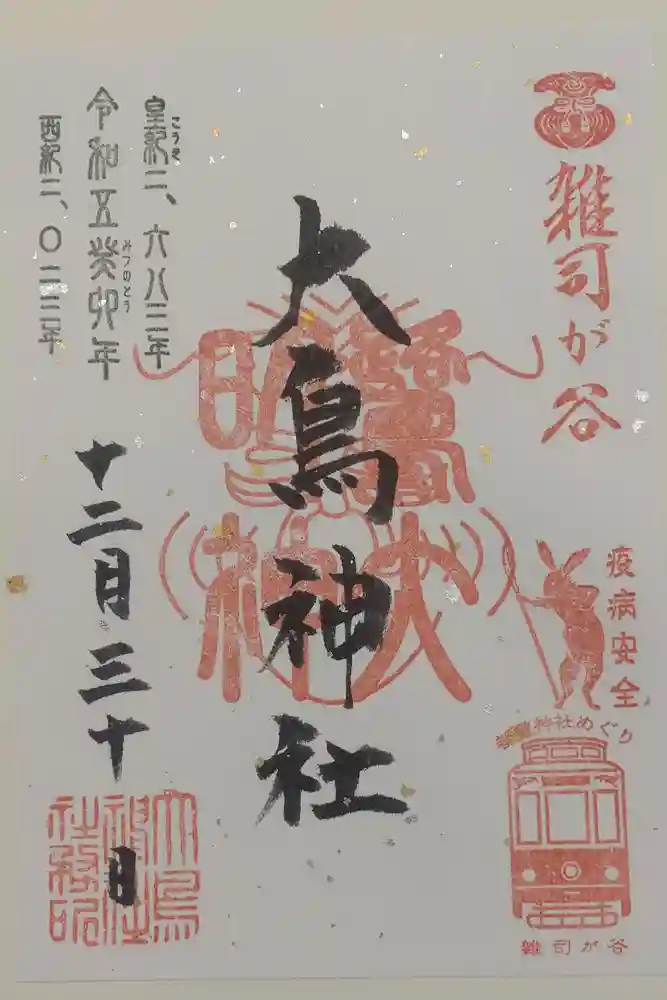 雑司が谷
疫病安全
神社めぐり
雑司が谷
大鳥神社
鷲大
明神
こうき
皇紀二、六八三年
みづのとう
令和五癸卯年
西紀二、〇二三年
十二月三十日
大鳥
神社
社務